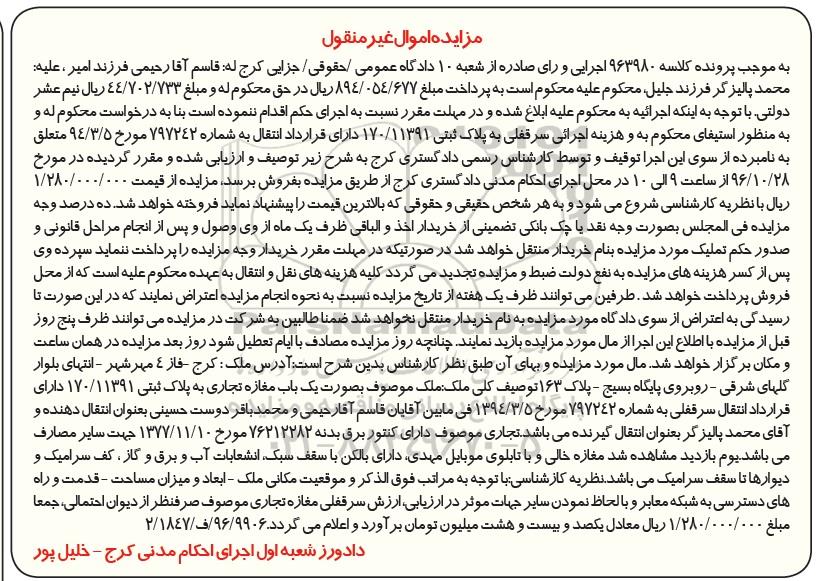 مزایده اموال غیر منقول
به موجب پرونده کلاسه ۹۶۳۹۸۰ اجرایی و رای صادره از شعبه ۱۰ دادگاه عمومی /حقوقی/ جزایی کرج له: قاسم آقا رحیمی فرزند امیر ، علیه:
محمد پالیزگر فرزند جلیل، محکوم علیه محکوم است به پرداخت مبلغ ۸۹۴/۰۵۴/۶۷۷ ریال در حق محکوم له و مبلغ ۴۴/۷۰۲/۷۳۳ ریال نیم عشر
دولتی. با توجه به اینکه اجرائیه به محکوم علیه ابلاغ شده و در مهلت مقرر نسبت به اجرای حکم اقدام ننموده است بنا به درخواست محکوم له و
به منظور استیفای محکوم به و هزینه اجرائی سرقفلی به پلاک ثبتی ۱۷۰/۱۱۳۹۱ دارای قرارداد انتقال به شماره ۷۹۷۲۴۲ مورخ ۹۴/۳/۵ متعلق
به نامبرده از سوی این اجرا توقیف و توسط کارشناس رسمی دادگستری کرج به شرح زیر توصیف و ارزیابی شده و مقرر گردیده در مورخ
۹۶/۱۰/۲۸ از ساعت ۹ الی ۱۰ در محل اجرای احکام مدنی دادگستری کرج از طریق مزایده بفروش برسد، مزایده از قیمت ۱/۲۸۰/۰۰۰/۰۰۰
ریال با نظریه کارشناسی شروع می شود و به هر شخص حقیقی و حقوقی که بالاترین قیمت را پیشنهاد نماید فروخته خواهد شد. ده درصد وجه
مزایده فی المجلس بصورت وجه نقد یا چک بانکی تضمینی از خریدار اخذ و الباقی ظرف یک ماه از وی وصول و پس از انجام مراحل قانونی و
صدور حکم تملیک مورد مزایده بنام خریدار منتقل خواهد شد. در صورتیکه در مهلت مقرر خریدار وجه مزایده را پرداخت ننماید سپرده وی
پس از کسر هزینه های مزایده به نفع دولت ضبط و مزایده تجدید می گردد کلیه هزینه های نقل و انتقال به عهده محکوم علیه است که از محل
فروش پرداخت خواهد شد. طرفین می توانند ظرف یک هفته از تاریخ مزایده نسبت به نحوه انجام مزایده اعتراض نمایند که در این صورت تا
رسیدگی به اعتراض از سوی دادگاه مورد مزایده به نام خریدار منتقل نخواهد شد ضمنا طالبین به شرکت در مزایده می توانند ظرف پنج روز
قبل از مزایده با اطلاع این اجرا از مال مورد مزایده بازید نمایند. چنانچه روز مزایده مصادف با ایام تعطیل شود روز بعد مزایده در همان ساعت
و مکان برگزار خواهد شد. مال مورد مزایده و بهای آن طبق نظر کارشناس بدین شرح است:آدرس ملک : کرج -فاز ۴ مهرشهر - انتهای بلوار
گلهای شرقی - روبروی پایگاه بسیج - پلاک ۱۶۳ توصیف کلی ملک:ملک موصوف بصورت یک باب مغازه تجاری به پلاک ثبتی ۱۷۰/۱۱۳۹۱ دارای
قرارداد انتقال سرقفلی به شماره ۷۹۷۲۴۲ مورخ ۱۳۹۴/۳/۵ فی مابین آقایان قاسم آقا رحیمی و محمدباقر دوست حسینی بعنوان انتقال دهنده و
آقای محمد پالیزگر بعنوان انتقال گیرنده می باشد.تجاری موصوف دارای کنتور برق بدنه ۷۶۲۱۲۲۸۲ مورخ ۱۳۷۷/۱۱/۱۰ جهت سایر مصارف
می باشد.یوم بازدید مشاهده شد مغازه خالی و با تابلوی موبایل مهدی، دارای بالکن با سقف سبک، انشعابات آب و برق و گاز ، کف سرامیک و
دیوارها تا سقف سرامیک می باشد.نظریه کارشناسی:با توجه به مراتب فوق الذکر و موقعیت مکانی ملک -ابعاد و میزان مساحت - قدمت و راه
های دسترسی به شبکه معابر و با لحاظ نمودن سایر جهات موثر در ارزیابی، ارزش سرقفلی مغازه تجاری موصوف صرفنظر از دیوان احتمالی، جمعا
مبلغ ۱/۲۸۰/۰۰۰/۰۰۰ ریال معادل یکصد و بیست و هشت میلیون تومان برآورد و اعلام می گردد.۹۶/۹۹۰۶/ف/۲/۱۸۴۷
دادورز شعبه اول اجرای احکام مدنی کرج - خلیل پور
ParsNamadData
۰۲۱-۸۸۳۴۹۶۷۰-۵